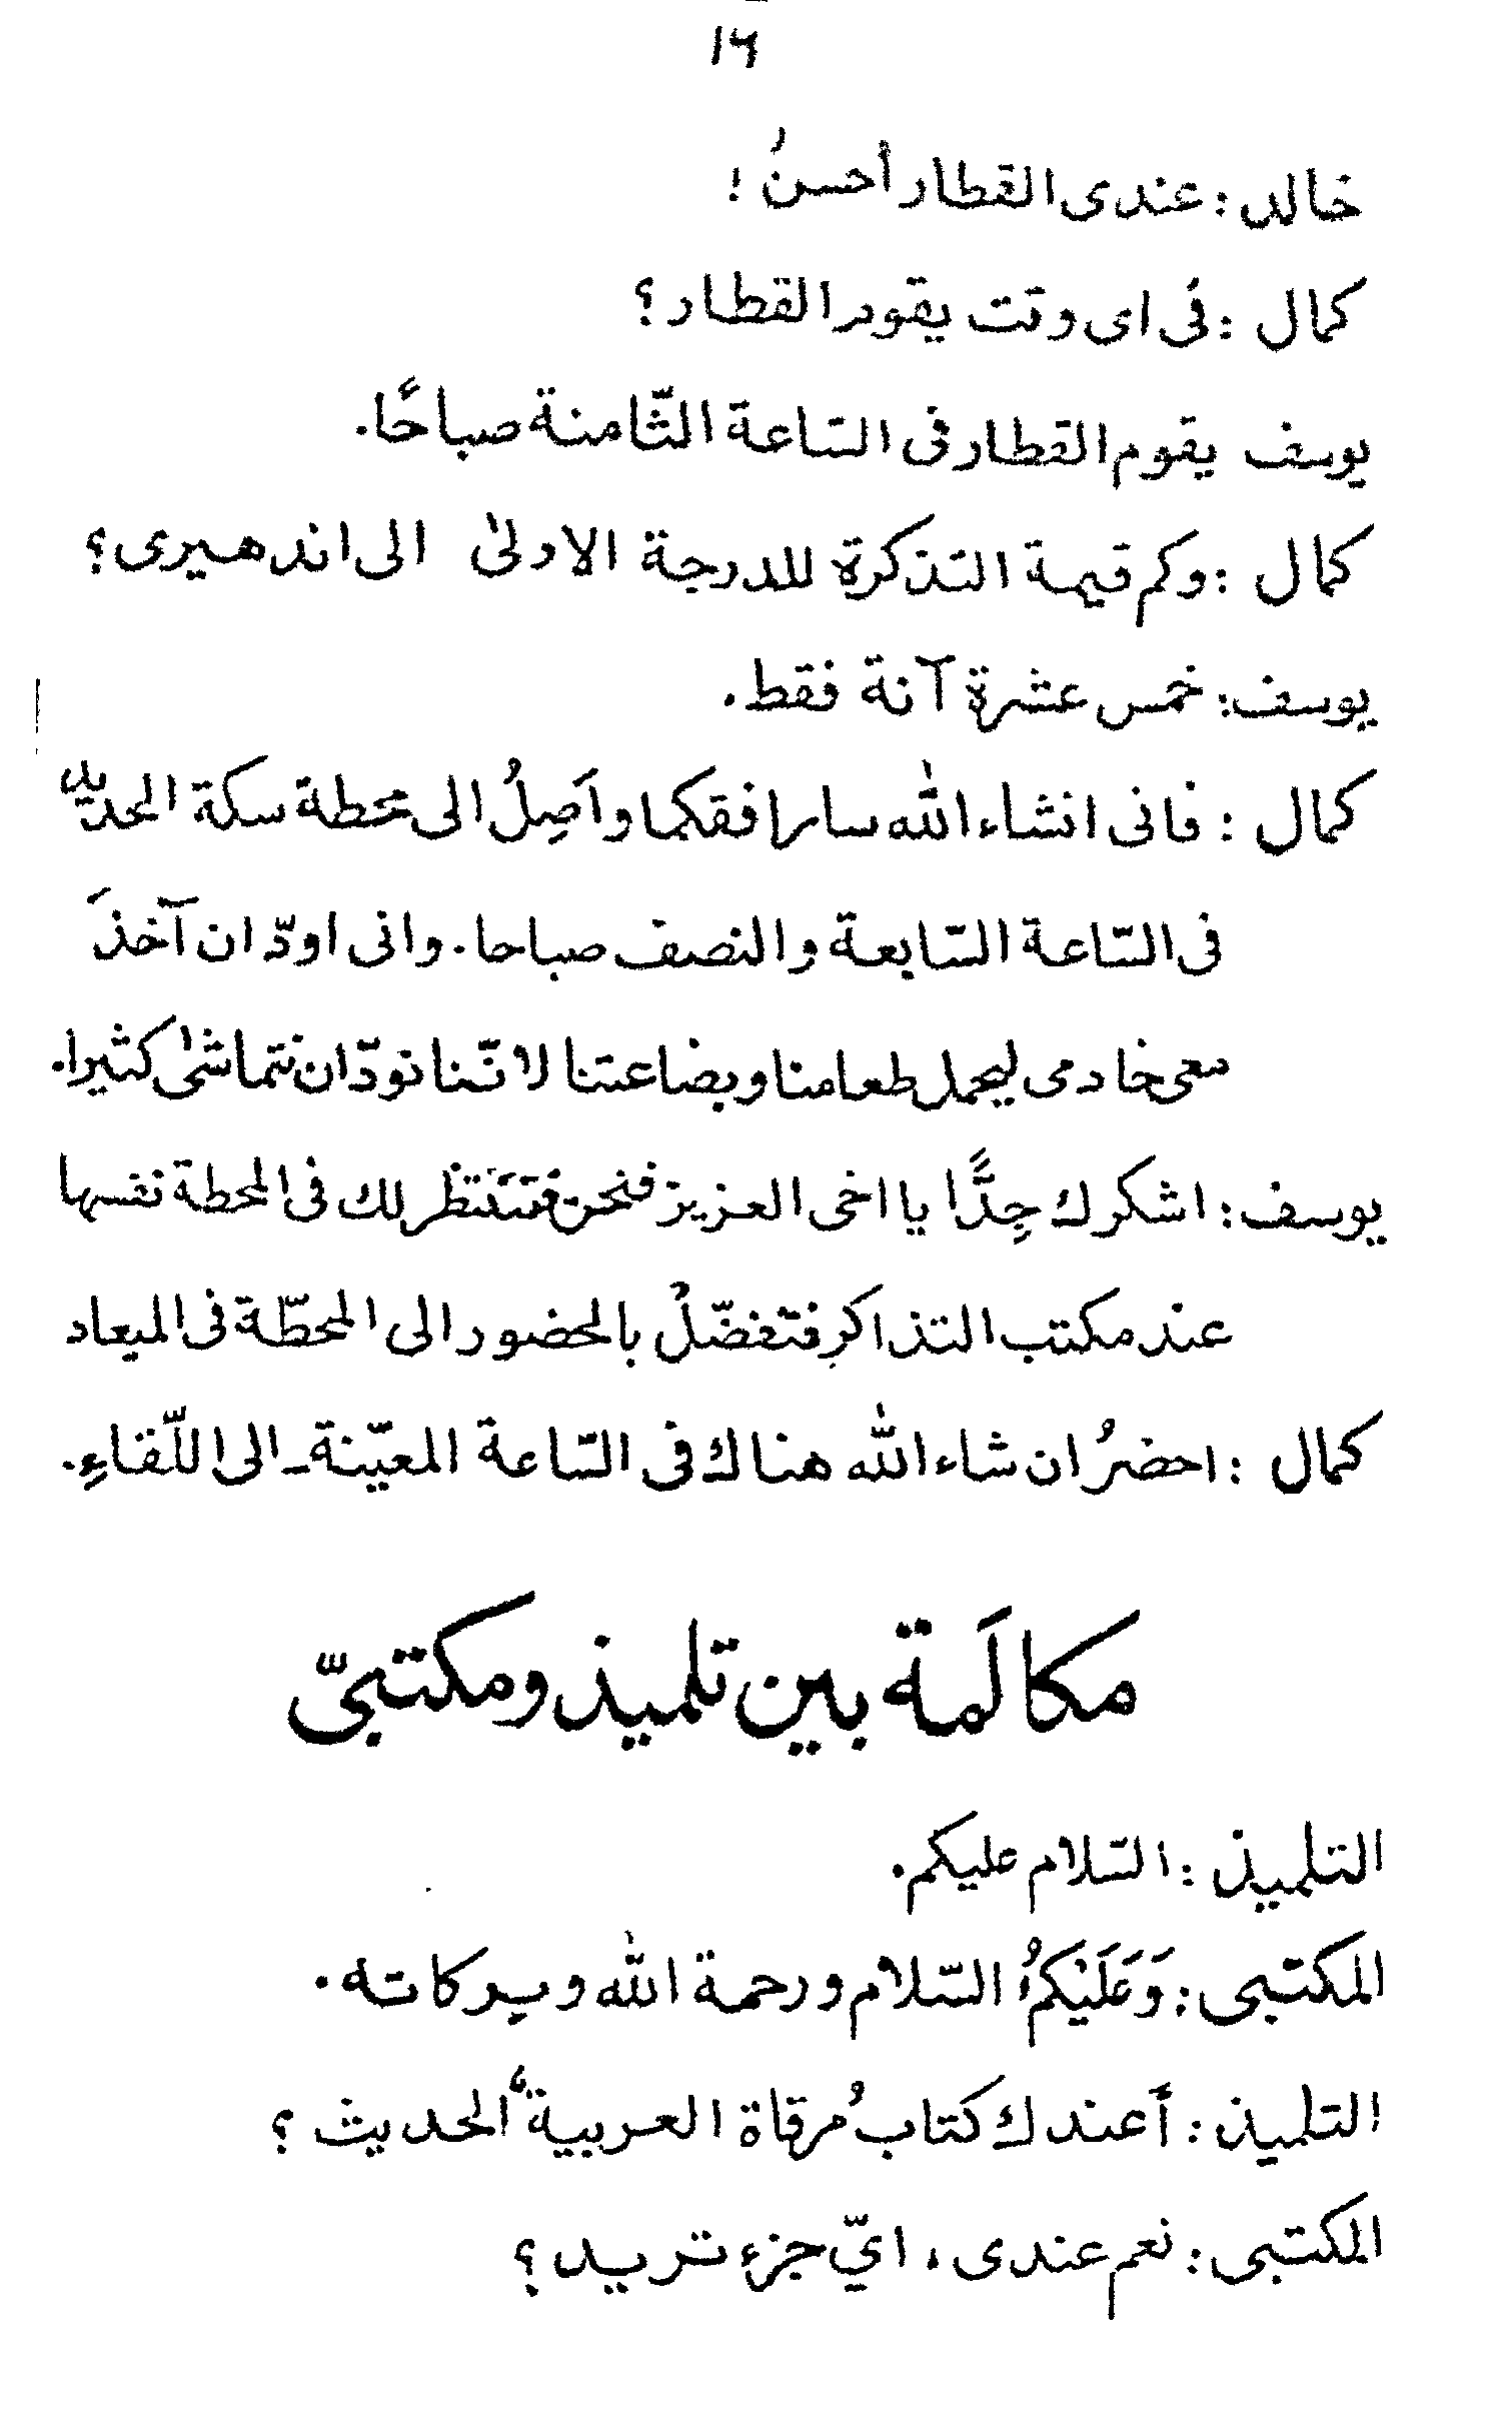 ١٦
خالد: عندى القطار أحسنُ !
كمال : فى اى وقت يقوم القطار ؟
يوسف يقوم القطار فى السّاعة الثّامنة صباحًا.
كمال : وكم قيمة التذكرة للدرجة الاولىٰ الى اندهيرى؟
يوسف: خمس عشرة آنة فقط.
كمال : فانى انشاء الله سارافقكما واَصِلُ الى محطة سكة الحديد
فى السّاعة السّابعة والنصف صباحا. وانى اودّ ان آخذَ
معى خادمى ليحمل طعامنا وبضاعتنا لانّنا نودّ ان نتماشىٰ كثيرا.
يوسف: اشكرك جِدًّا يا اخى العزيز فنحن نتنتظر لك فى المحطة نفسها
عند مكتب التذاكر فتفضّلْ بالحضور الى المحطّة فى الميعاد
كمال : احضرُ ان شاء الله هناك فى السّاعة المعيّنة ـ الى اللّقاءِ.
مكالَمة بين تلميذ ومكتبىّ
التلميذ : السّلام عليكم.
المكتبى: وَعَلَيْكمُ السّلام ورحمة الله وبركاته.
التلميذ: أَعندك كتابُ مرقاة العربية الحديث ؟
المكتبى: نعم عندى، اىّ جزء تريد؟